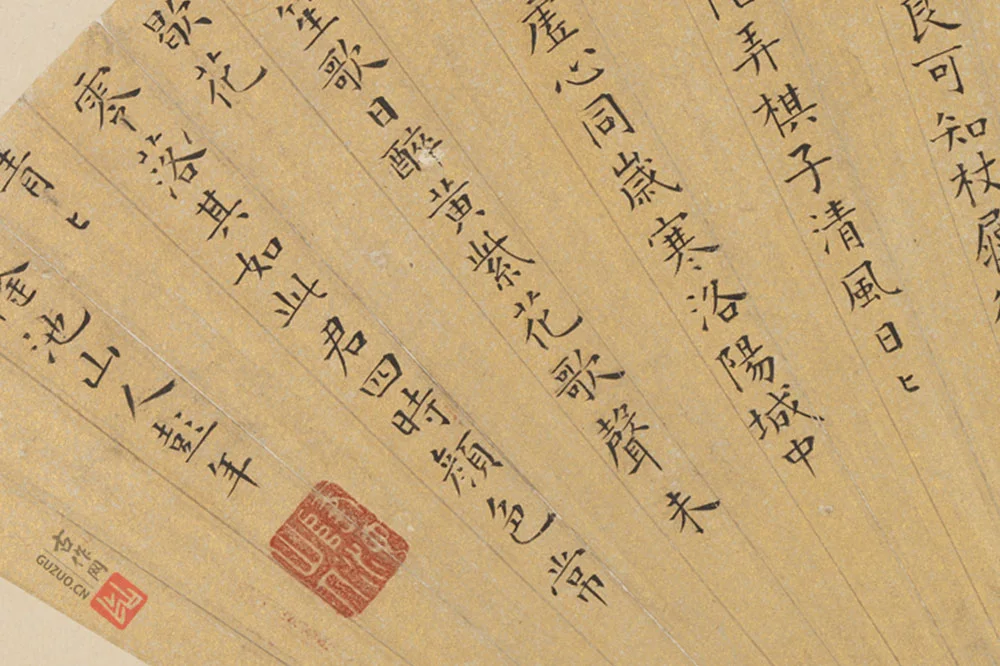 良可知杖
弄棋子清風日〻
虛心同歲寒洛陽城中
笙歌日醉黃紫花歌聲未
歇花
零落其如此君四時顏色常
青〻
池山人彭年
古作网
GUZUO.CN